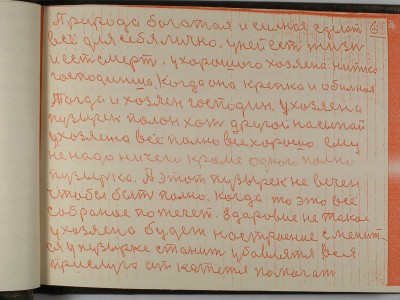 Природа богатая и сильная сделат 64
всё для себя лично. у ней ест жизн
и ест смерт. у хорошого хозяена нитко
господинща, когда она крепка и обилная
Тогда и хозяен господин. у хозяена
пузырек полон хот другой насипай
у хозяена всё полно всё хорошо ему
не надо ничего кроме одного полно
пузирка. А этот пузырек не вечен
чтобы быт полно. когда то это всё
собраное потечет. здаровие не такое
у хозяена будет настроение сменит-
ся у пузырка станит убавлятся вся
прислуга от катется помагат